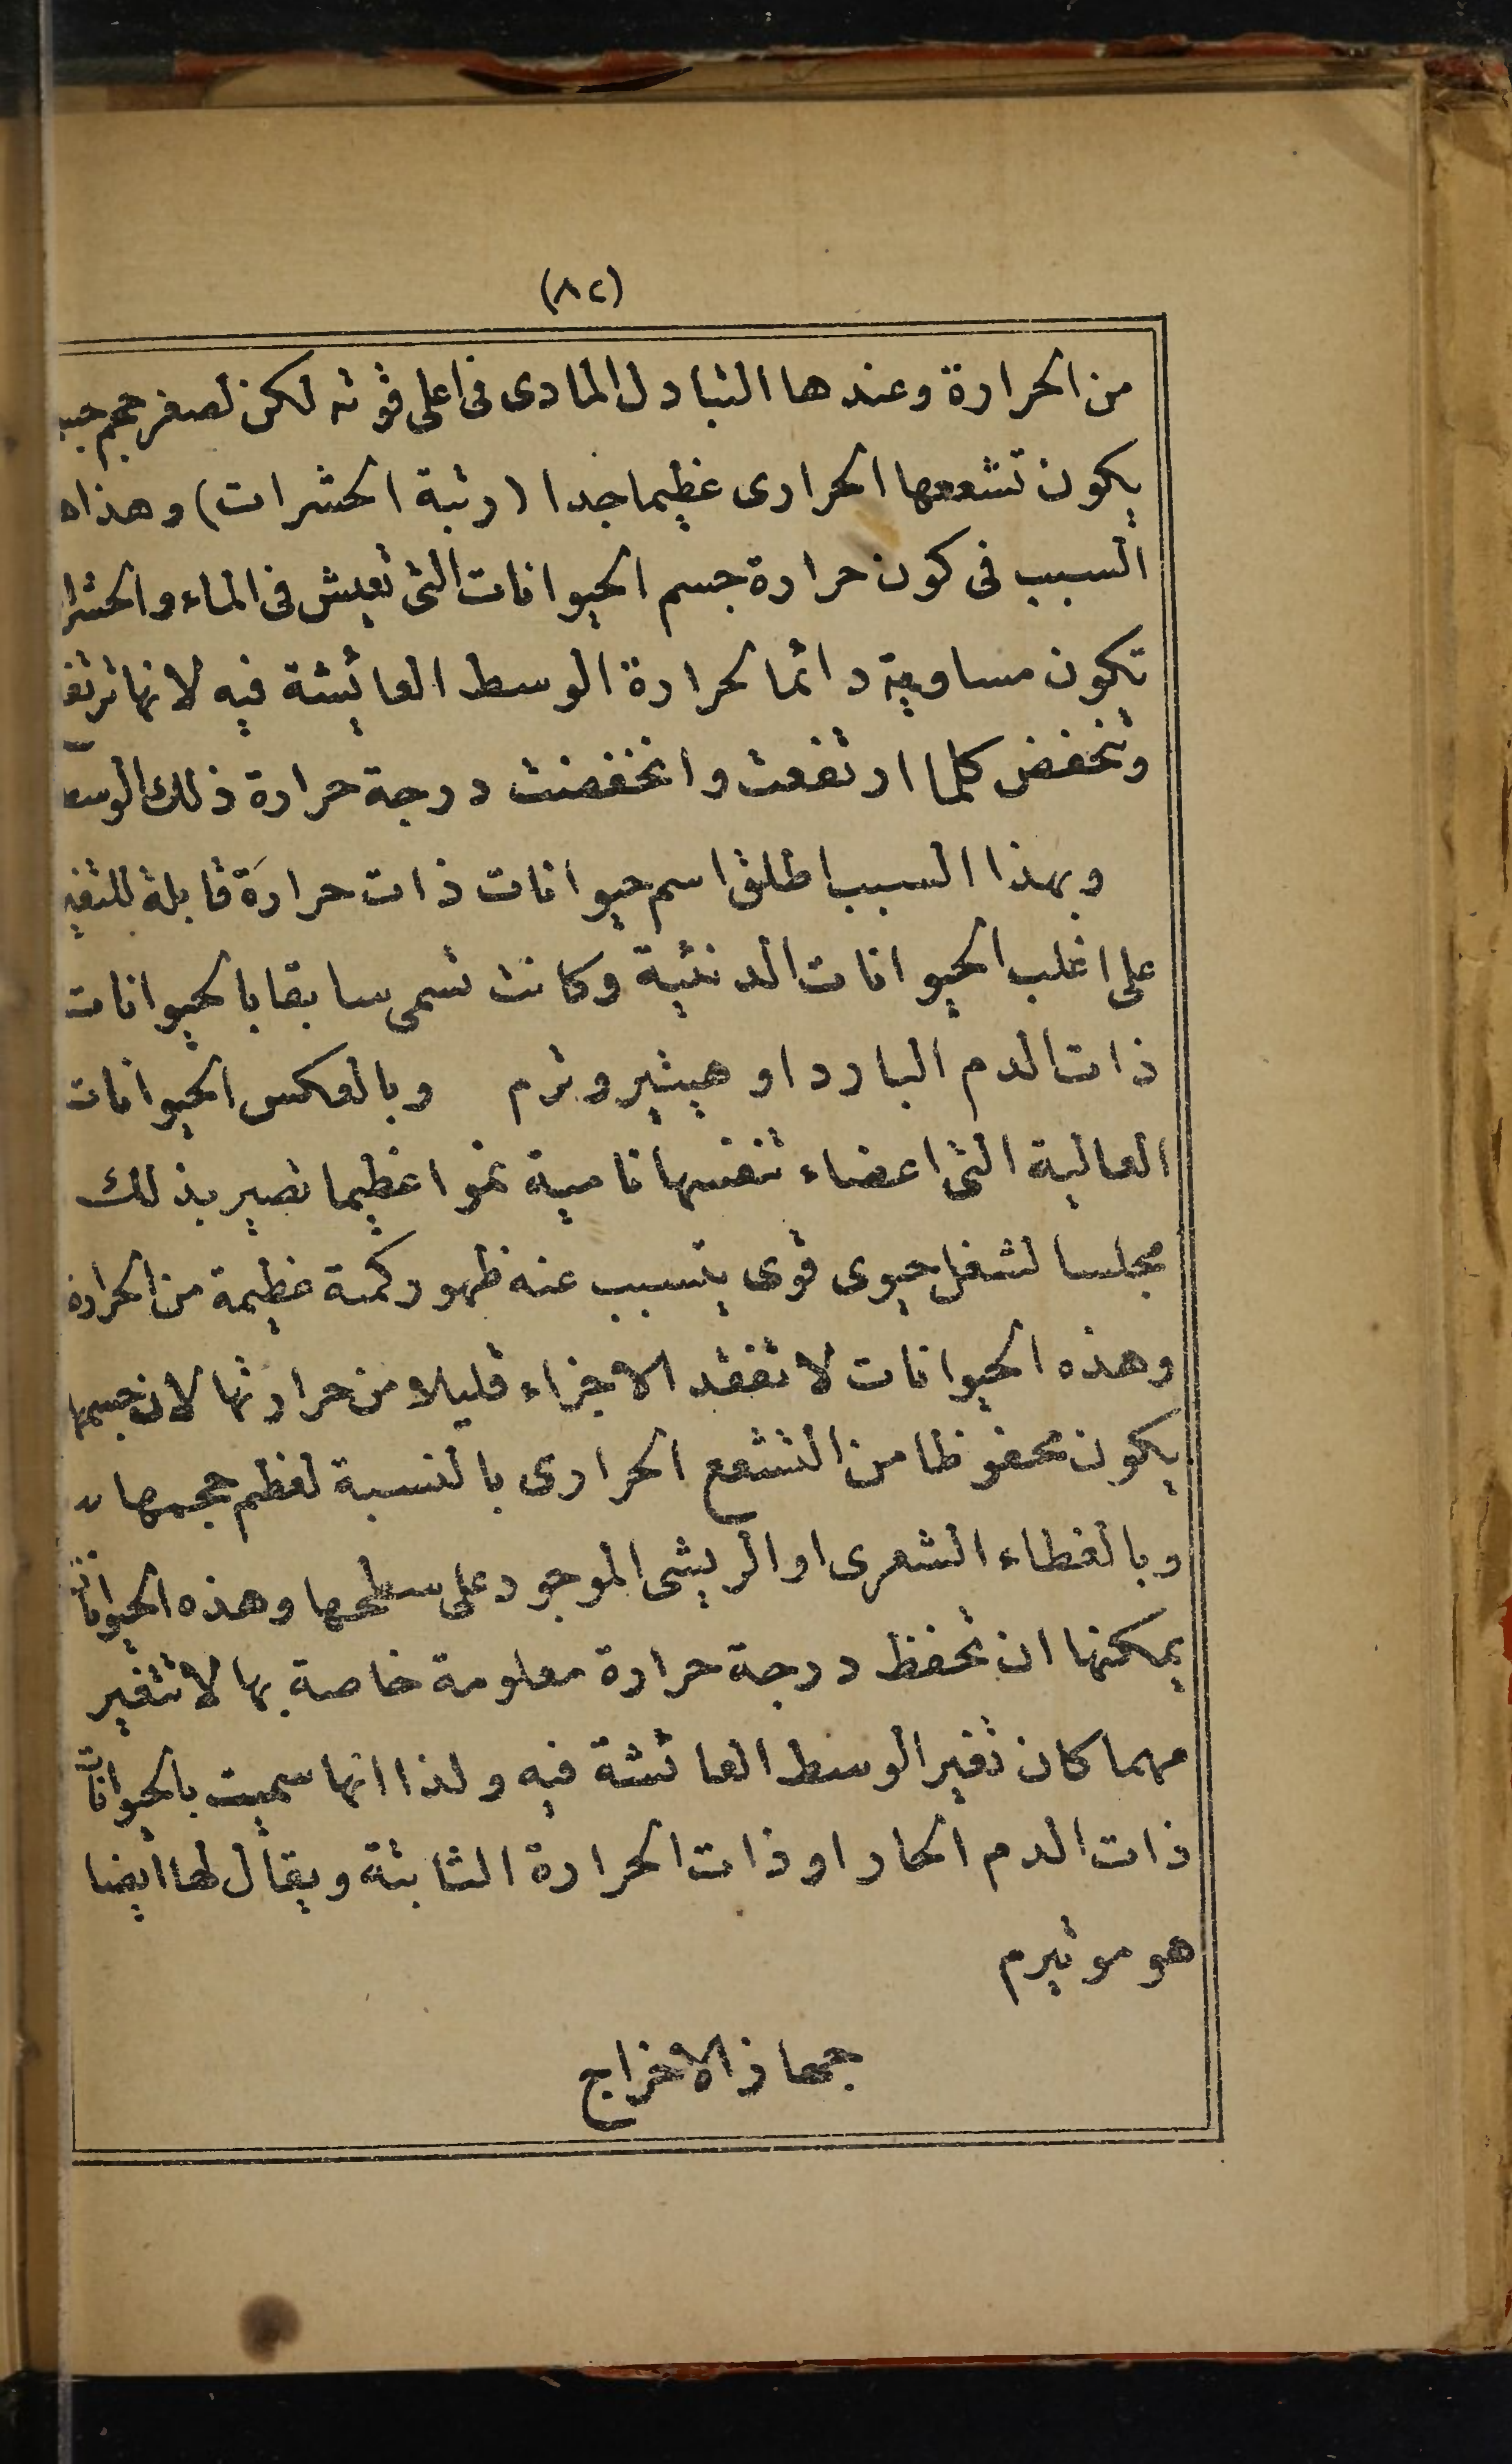 (٨٢)
من الحرارة وعندها التبادل المادى فى اعلى قوته لكن لصغر حجم
يكون تشععها الحرارى عظيما جدا (رتبة الحشرات) وهذا
السبب فى كون حرارة جسم الحيوانات التى تعيش فى الماء والحشرا
تكون مساوية دائما لحرارة الوسط العائيشة فيه لانها
وتنخفض كلما ارتفعت وانخفضت درجة حرارة ذلك الوسط
وبهذا السبب اطلق اسم حيوانات ذات حرارة قابلة للتغير
على اغلب الحيوانات الدنئية وكانت تسمى سابقا بالحيوانات
ذات الدم البارد او هيتيروترم وبالعكس الحيوانات
العالية التى اعضاء تنفسها نامية نموا عظيما تصير بذلك
مجلسا لشغل حيوى قوى يتسبب عنه ظهور كمية عظيمة من الحرارة
وهذه الحيوانات لا تفقد الا جزاء قليلا من حرارتها لان جسمها
يكون محفوظا من التشعع الحرارى بالنسبة لعظم حجمها
وبالغطاء الشعرى او الريشى الموجود على سطحها وهذه الحيوانات
يمكنها ان تحفظ درجة حرارة معلومة خاصة بها لا تتغير
مهما كان تغير الوسط العائشة فيه ولذا انها سميت بالحيوانات
ذات الدم الحار او ذات الحرارة الثابتة ويقال لها ايضا
هوموتيرم
جهاز الاخراج